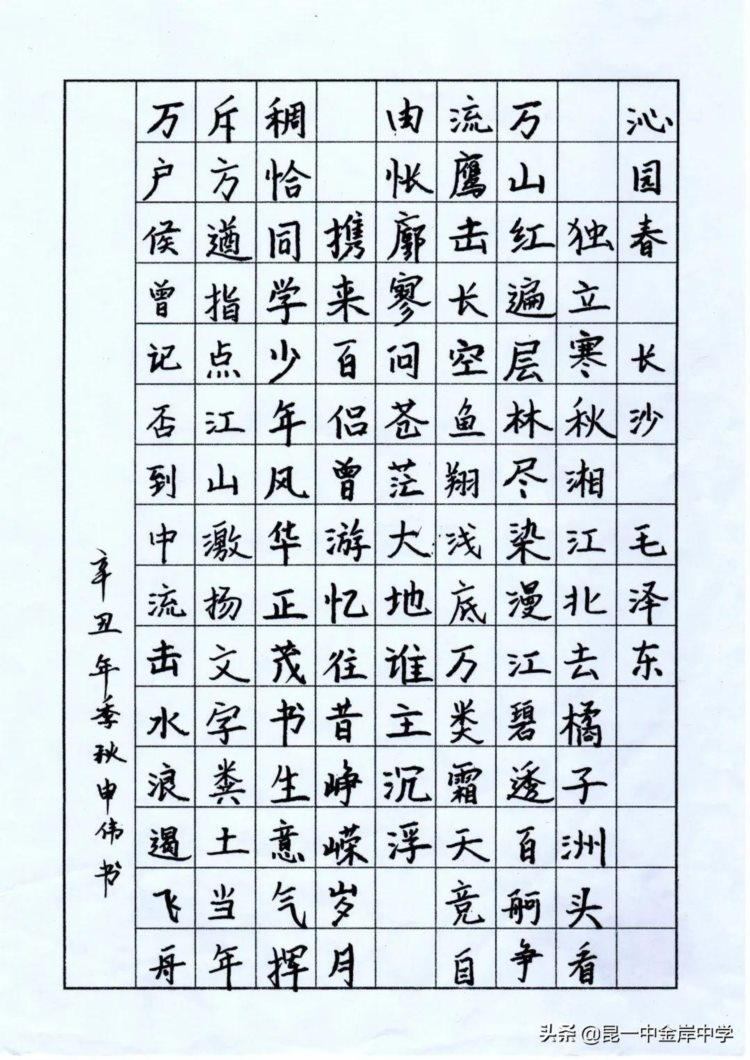 沁园春 长沙 毛泽东
独立寒秋湘江北去橘子洲头看
万山红遍层林尽染漫江碧透百舸争
流鹰击长空鱼翔浅底万类霜天竞自
由怅廓寥问苍茫大地谁主沉浮
携来百侣曾游忆往昔峥嵘岁月
稠恰同学少年风华正茂书生意气挥
斥方遒指点江山激扬文字粪土当年
万户侯曾记否到中流击水浪遏飞舟
辛丑年季秋申伟书
头条 @昆一中金岸中学